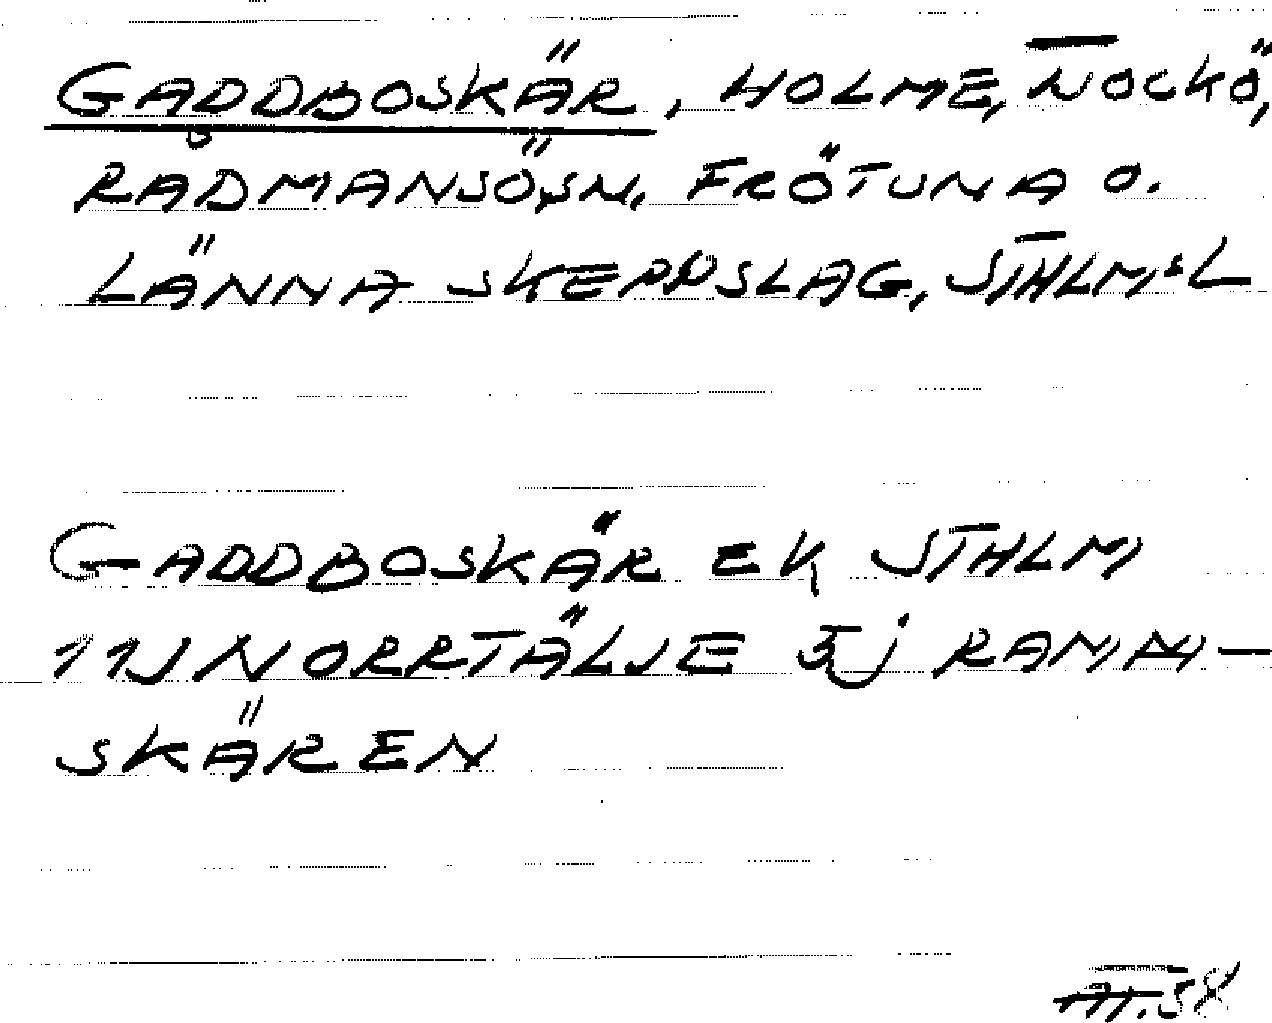 GADDBOSKÄR, HOLME, NOCKÖ,
RÅDMANSÖ SN, FRÖTUNA O.
LÄNNA SKEPPSLAG, STHLMSL
GADDBOSKÄR EK STHLM
11J NORRTÄLJE 5j RAMM-
SKÄREN